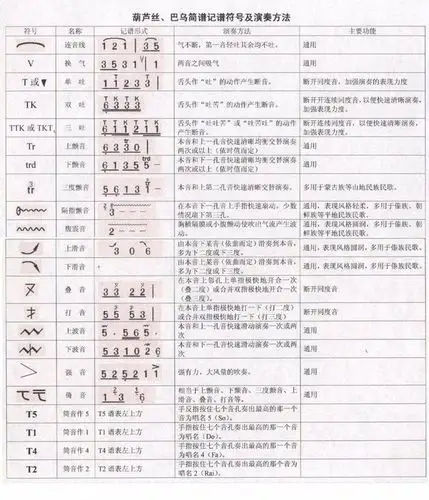 葫芦丝、巴乌简谱记谱符号及演奏方法
符号 名称 记谱形式 演奏方法 主要功能
连音线 1 2 1 | 3 5 气不断，第一音轻吐其余均不吐。 通用
V 换气 3 5 3 1 两音之间吸气 通用
T或▼ 单吐 6 1 1 1 舌头作“吐”的动作产生断音。 断开同度音，加强演奏的表现力度
TK 双吐 6 3 3 3 舌头作“吐苦”的动作产生断音。 断开开连续同度音，以便快速清晰演奏，
加强表现力度。
TTK 或 TKT 三吐 6 1 1 2 1 1 舌头作“吐吐苦”或“吐苦吐”的动作
产生断音。 断开连续同度音，以便快速清晰演奏，
加强表现力度。
Tr 上颤音 6 1 3 2 本音和上一孔音快速清晰均衡交替演奏
两次或以上（依时值而定） 通用
trd 下颤音 6 1 3 5 5 本音和下一孔音快速清晰均衡交替演奏
两次或以上（依时值而定） 通用
3
tr 三度颤音 5 6 1 3 本音和上第二孔音快速清晰演奏。 多用于蒙古族等山地民族民歌。
隔指颤音 在本音下一孔音上手指快速扇动，少数
情况扇下第三孔。 通用，表现风格轻柔，多用于傣族、朝
鲜族等平地民族民歌。
腹震音 胸横隔膜或小腹颤动使吹出气流产生波
动。 通用，表现风格圆润，多用于傣族、朝
鲜族等平地民族民歌。
上滑音 3 0 6 由本音下某音（弦曲而定）滑奏到本音，
多为下二度或下三度。 通用，表现风格圆润，多用于傣族民歌。
下滑音 由本音上某音（弦曲而定）滑奏到本音，
多为上二度或上三度。 通用，表现风格圆润，多用于傣族民歌。
又 叠音 3 3 2 2 在本音上邻孔上单指极快地开合一次
（叠二度）或合并双指极快地开合一次
（叠三度）。 断开同度音
打音 3 3 2 2 在本音上单指极快地打一下（打二度）
或合并双指极快地打一下（打三度） 断开同度音
上波音 5 . 5 6 5 . 本音和上一孔音快速滑动演奏一次或两
次 通用
下波音 5 3 1 0 2 6 本音和下一孔音快速滑动演奏一次或两
次 通用
＞ 强音 5 2 5 2 1 1 强有力、大风量的吹奏。 通用
倚音 相当于上颤音、下颤音、三度颤音、上
滑音、叠音、打音等。 通用
T5 筒音作 5 T5 谱表左上方 手反指按住七个音孔奏出最高的那一个
音为唱名 5（So）。
T1 筒音作 1 T1 谱表左上方 手指按住七个音孔奏出最高的那一个音
为唱名（Do）。
T4 筒音作 4 T4 谱表左上方 手指按住七个音孔奏出最高的那一个音
为唱名 4（Fa）。
T2 筒音作 2 T2 谱表左上方 手指按住七个音孔奏出最高的那一个音为
为唱名 2（Rai）。